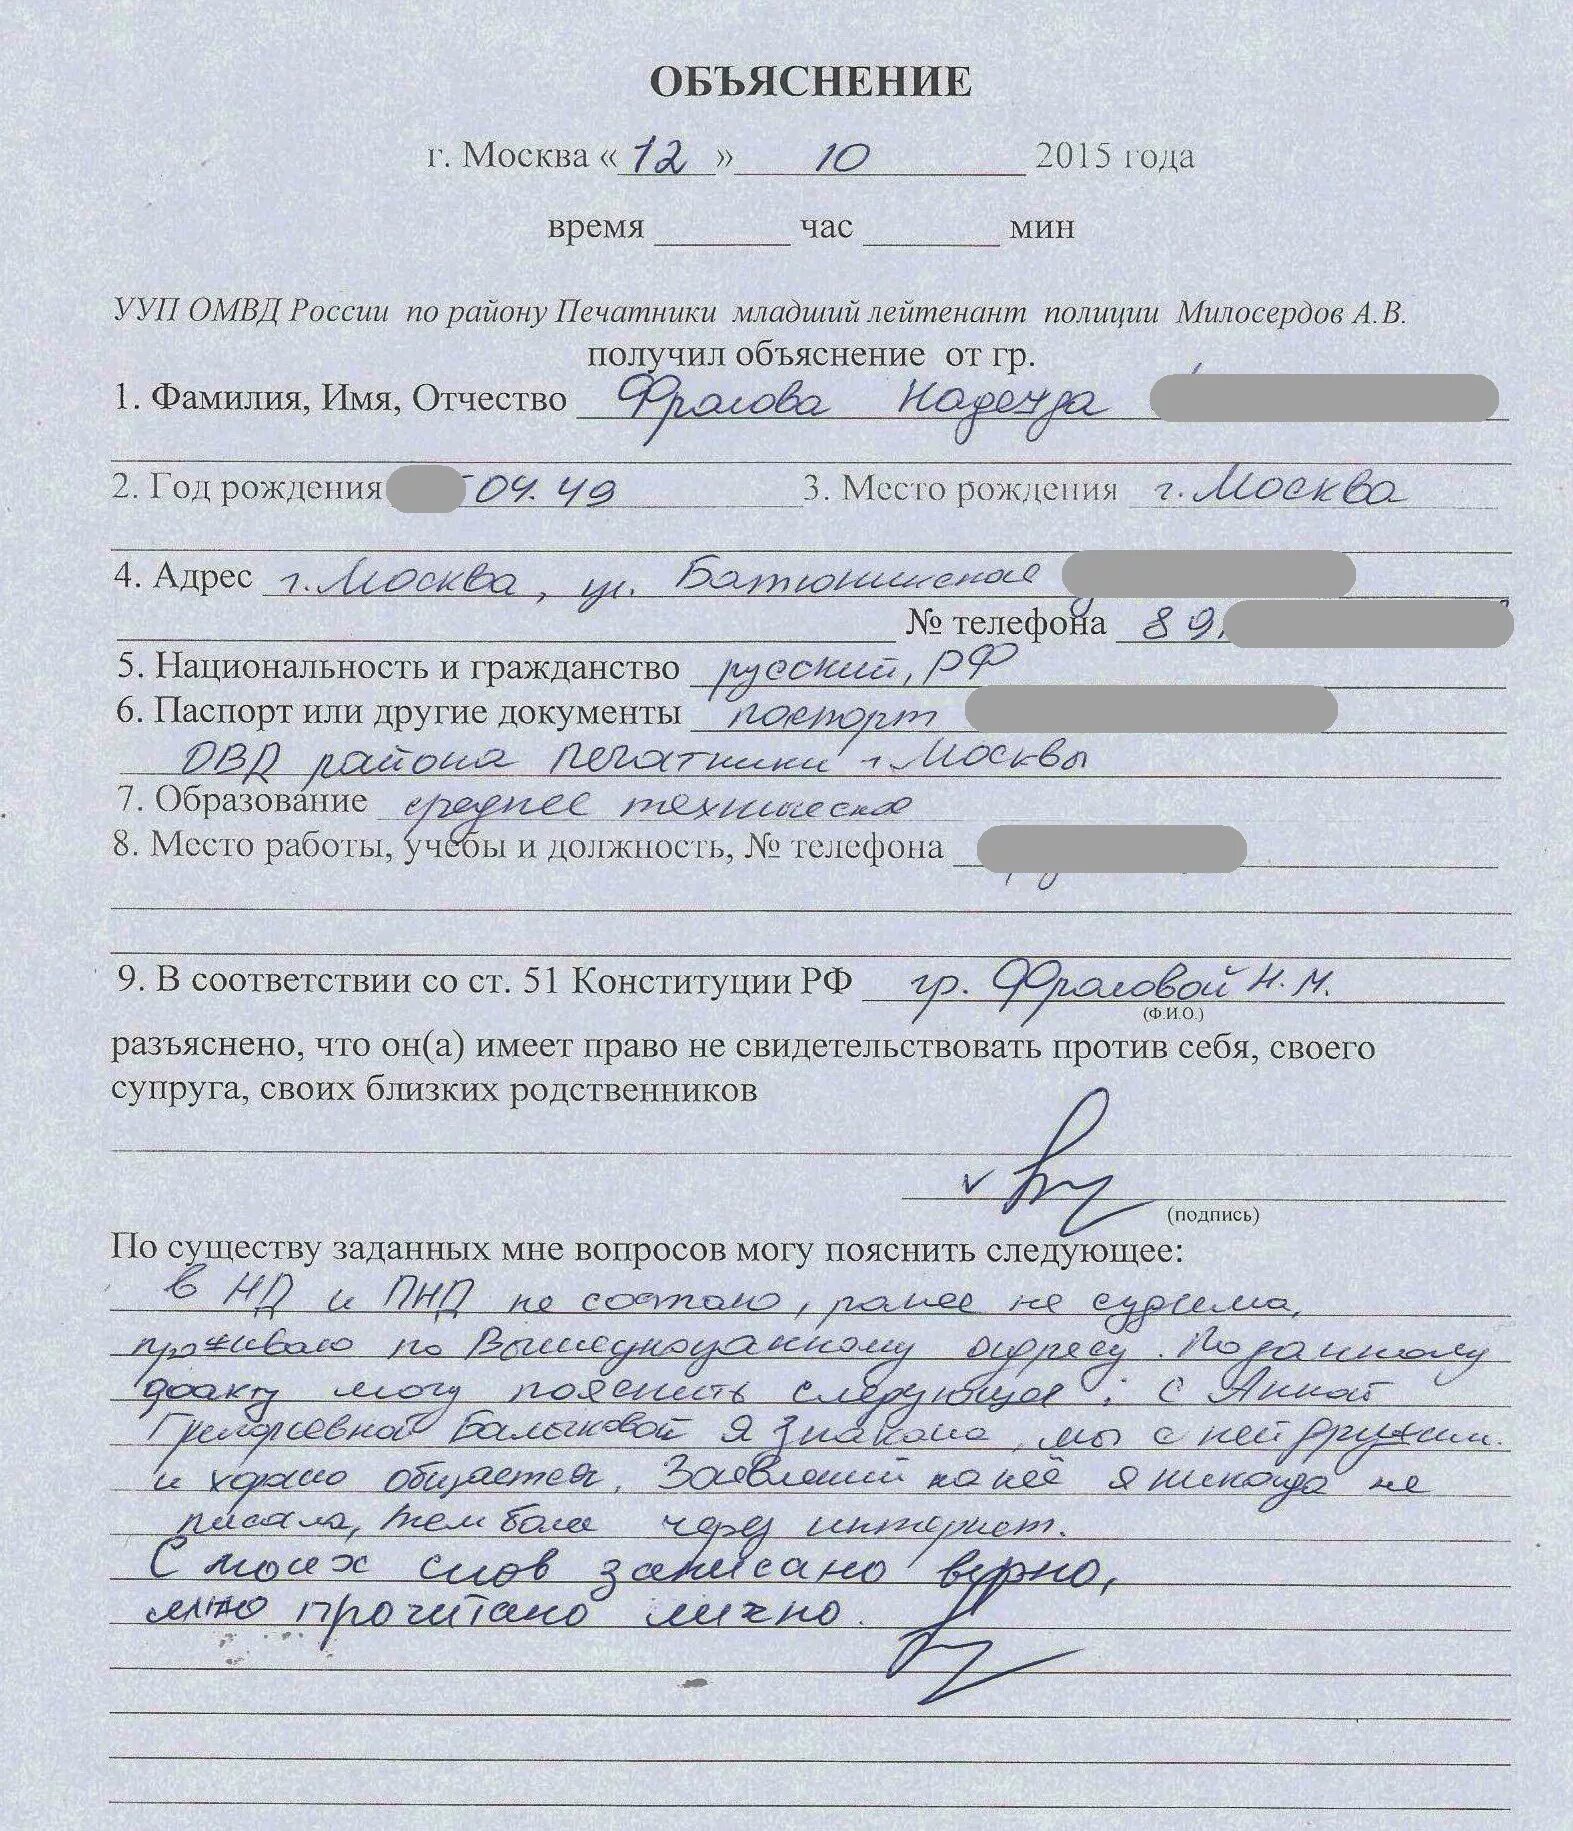 ОБЪЯСНЕНИЕ
г. Москва «12» 10 2015 года
время ______ час ______ мин
УУП ОМВД России по району Печатники младший лейтенант полиции Милосердов А.В.
получил объяснение от гр.
1. Фамилия, Имя, Отчество Фролова Надежда
2. Год рождения 04.49 3. Место рождения г. Москва
4. Адрес г. Москва, ул. Батюнинская
№ телефона 89
5. Национальность и гражданство русский, РФ
6. Паспорт или другие документы паспорт
ОВД района Печатники г. Москвы
7. Образование среднее техническое
8. Место работы, учебы и должность, № телефона
9. В соответствии со ст. 51 Конституции РФ гр. Фроловой Н.М.
(Ф.И.О.)
разъяснено, что он(а) имеет право не свидетельствовать против себя, своего
супруга, своих близких родственников
(подпись)
По существу заданных мне вопросов могу пояснить следующее:
в НД и ПНД не состою, ранее не судима,
проживаю по Вышеуказанному адресу. По данному
факту могу пояснить следующее: с Анной
Григорьевной Балыковой я знакома, мы с ней дружим
и хорошо общаемся. Заявлений на неё я никогда не
писала, тем более через интернет.
С моих слов записано верно,
мною прочитано лично.